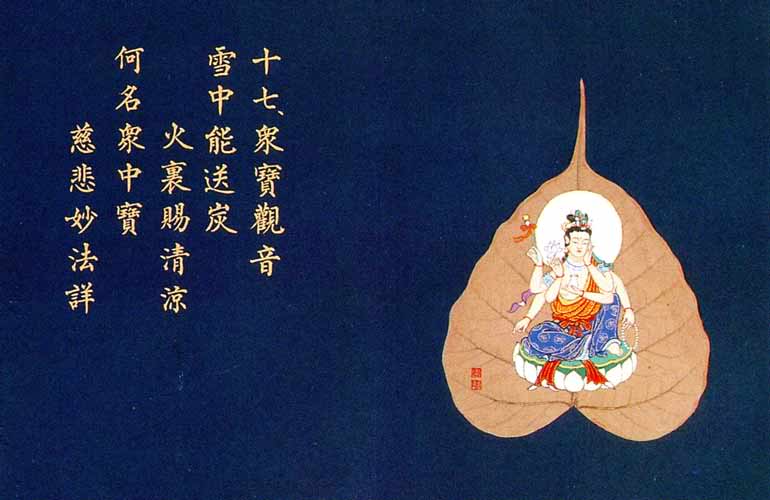 十七、衆寶觀音
雪中能送炭
火裏賜清涼
何名衆中寶
慈悲妙法詳